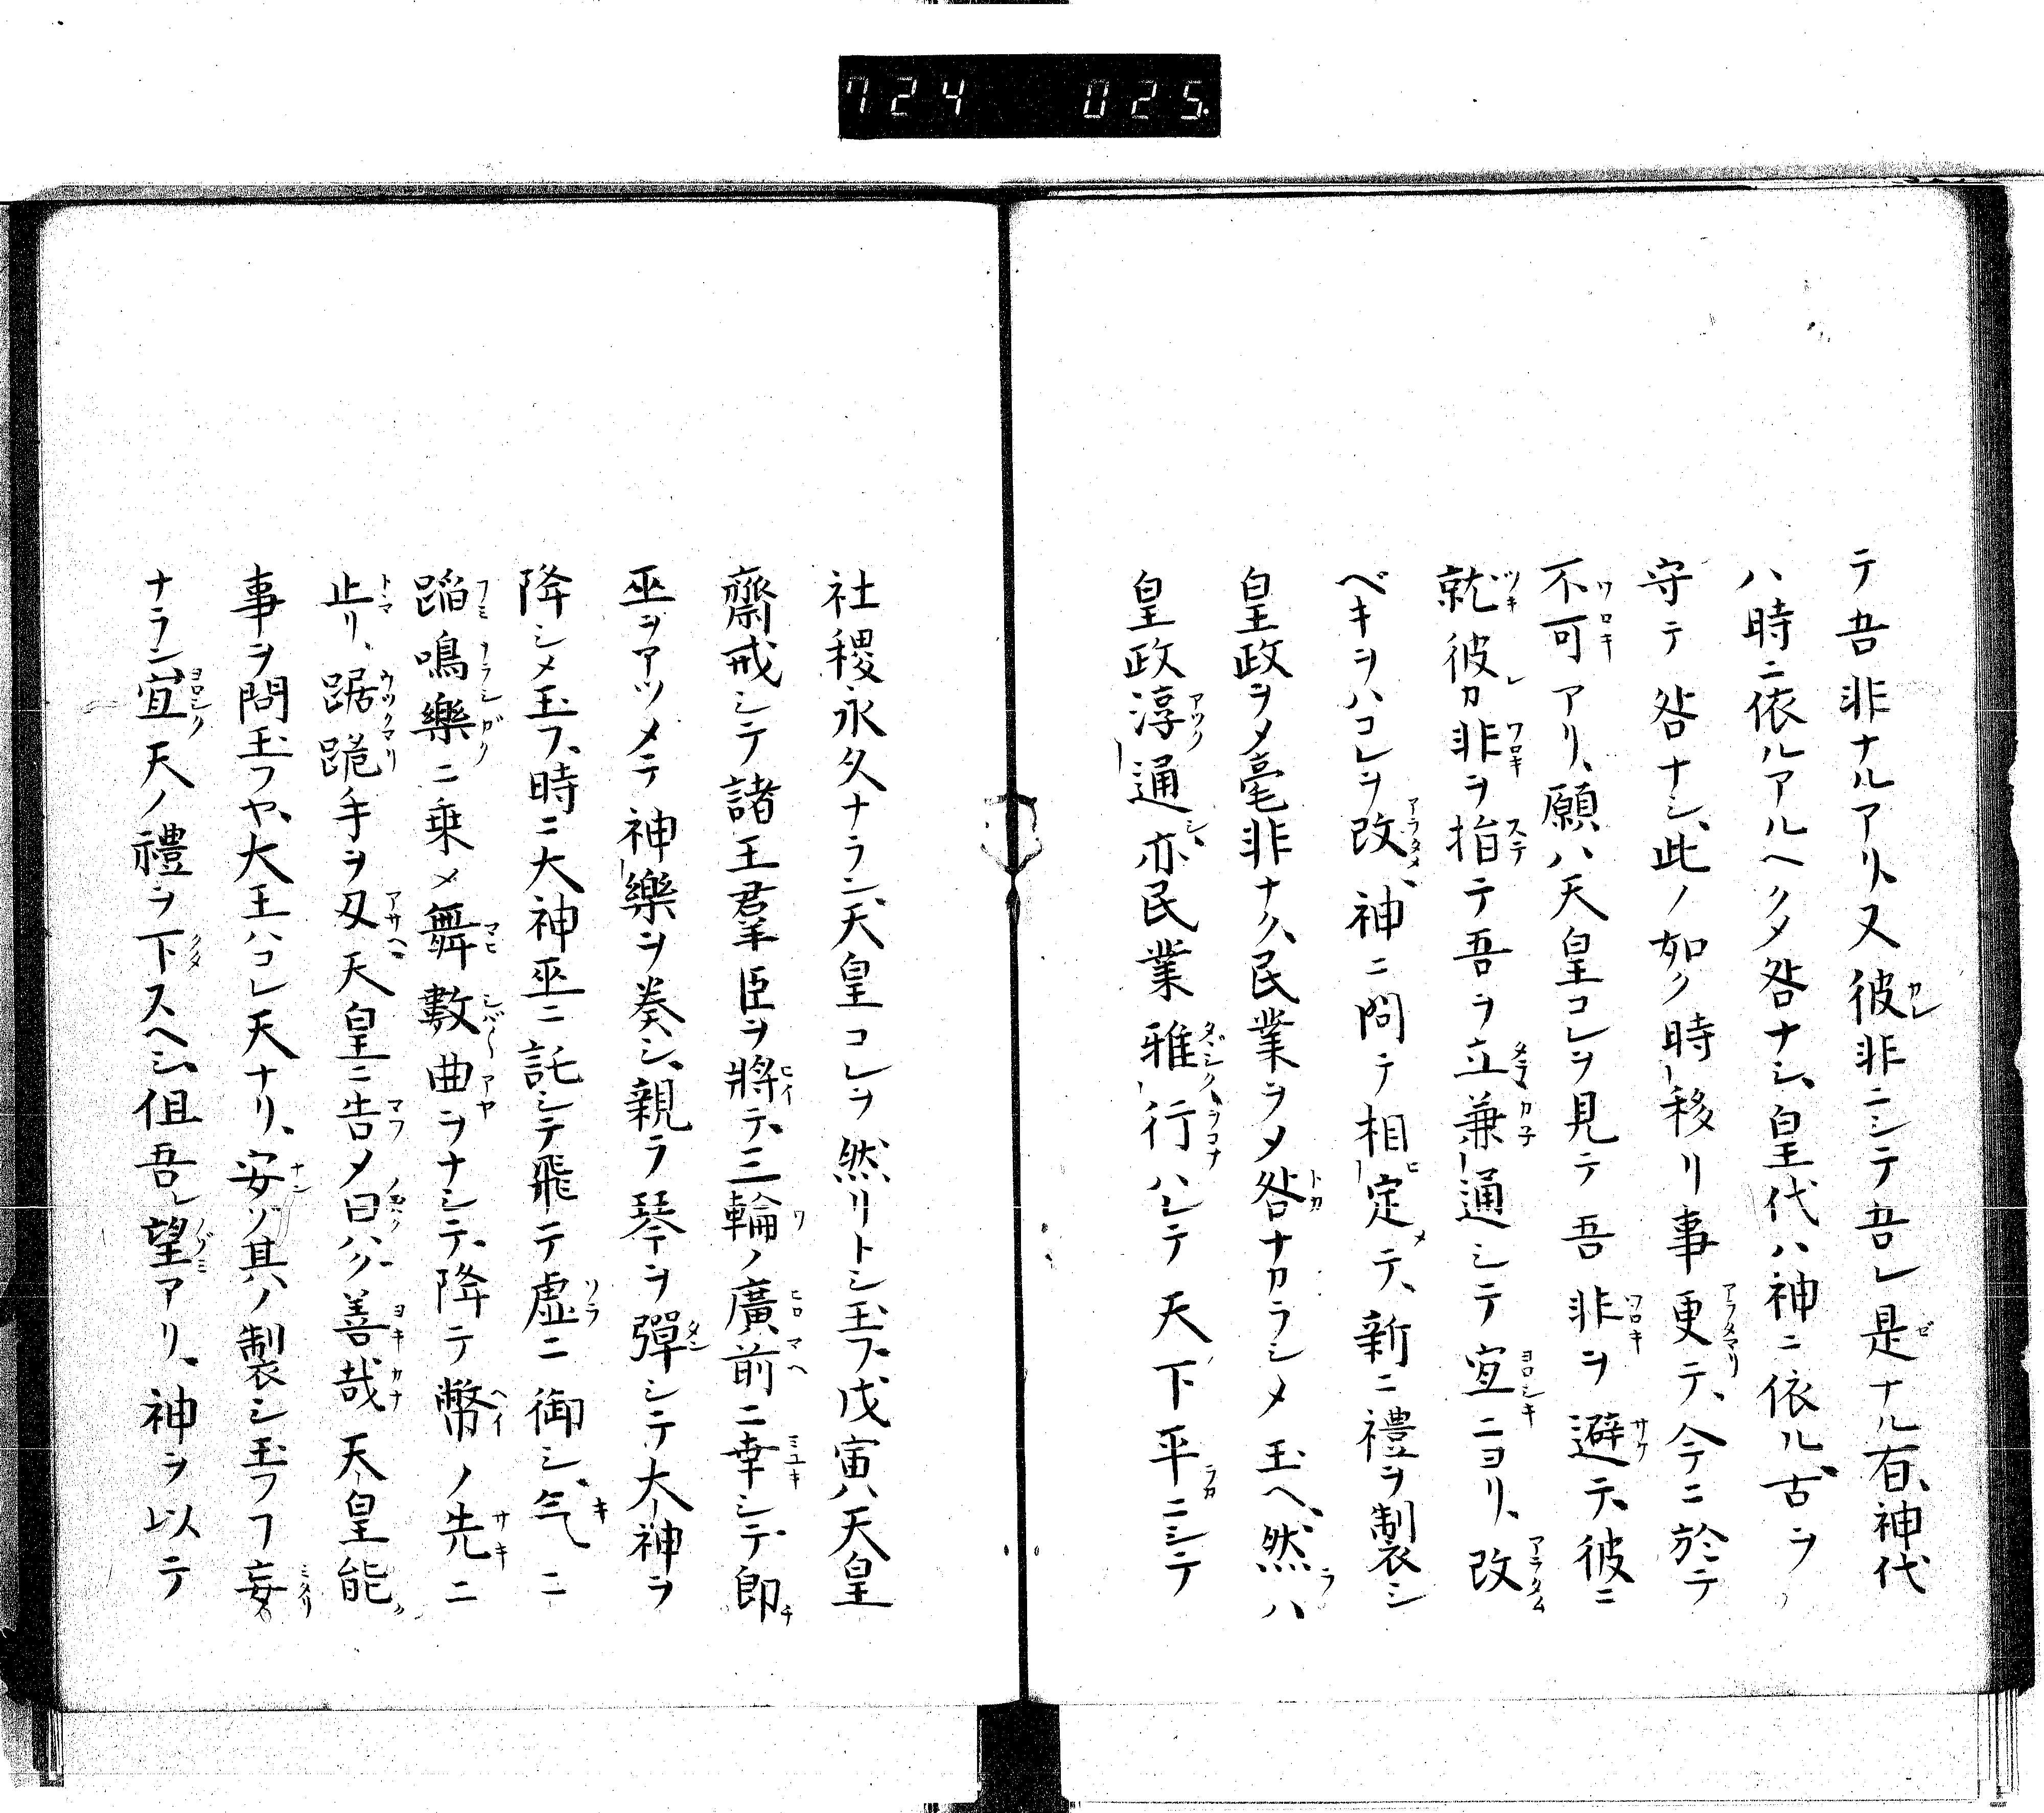 724 025.
テ吾非ナルアリ、又彼非ニシテ吾レ是ナル有、神代
ハ時ニ依ルアルヘクメ咎ナシ、皇代ハ神ニ依ル、古ヲ
守テ咎ナシ、此ノ如ク時移リ事更テ、今ニ於テ
不可アリ、願ハ天皇コレヲ見テ吾非ヲ避テ、彼ニ
就彼カ非ヲ捨テ吾ヲ立兼通シテ宜ニヨリ、改
ベキヲハコレヲ改、神ニ問テ相定テ、新ニ禮ヲ製シ
皇政ヲメ毫非ナク、民業ヲメ咎ナカラシメ玉ヘ、然ハ
皇政淳通亦民業雅行ハレテ天下平ニシテ
社稷永久ナラン、天皇コレヲ然リトシ玉フ、戊寅ハ天皇
齋戒シテ諸王羣臣ヲ將テ、三輪ノ廣前ニ幸シデ、即
巫ヲアツメテ神樂ヲ奏シ、親ラ琴ヲ彈シテ大神ヲ
降シメ玉フ、時ニ大神巫ニ託シテ飛テ虚ニ御シ、气ニ
蹈鳴樂ニ乗メ舞數曲ヲナシテ、降テ幣ノ先ニ
止リ、踞跪手ヲ叉天皇ニ告メ曰ハク善哉天皇能
事ヲ問玉フヤ、大王ハコレ天ナリ、安ソ其ノ製シ玉フフ妄
ナラン、宜天ノ禮ヲ下スヘシ、但吾レ望アリ、神ヲ以テ